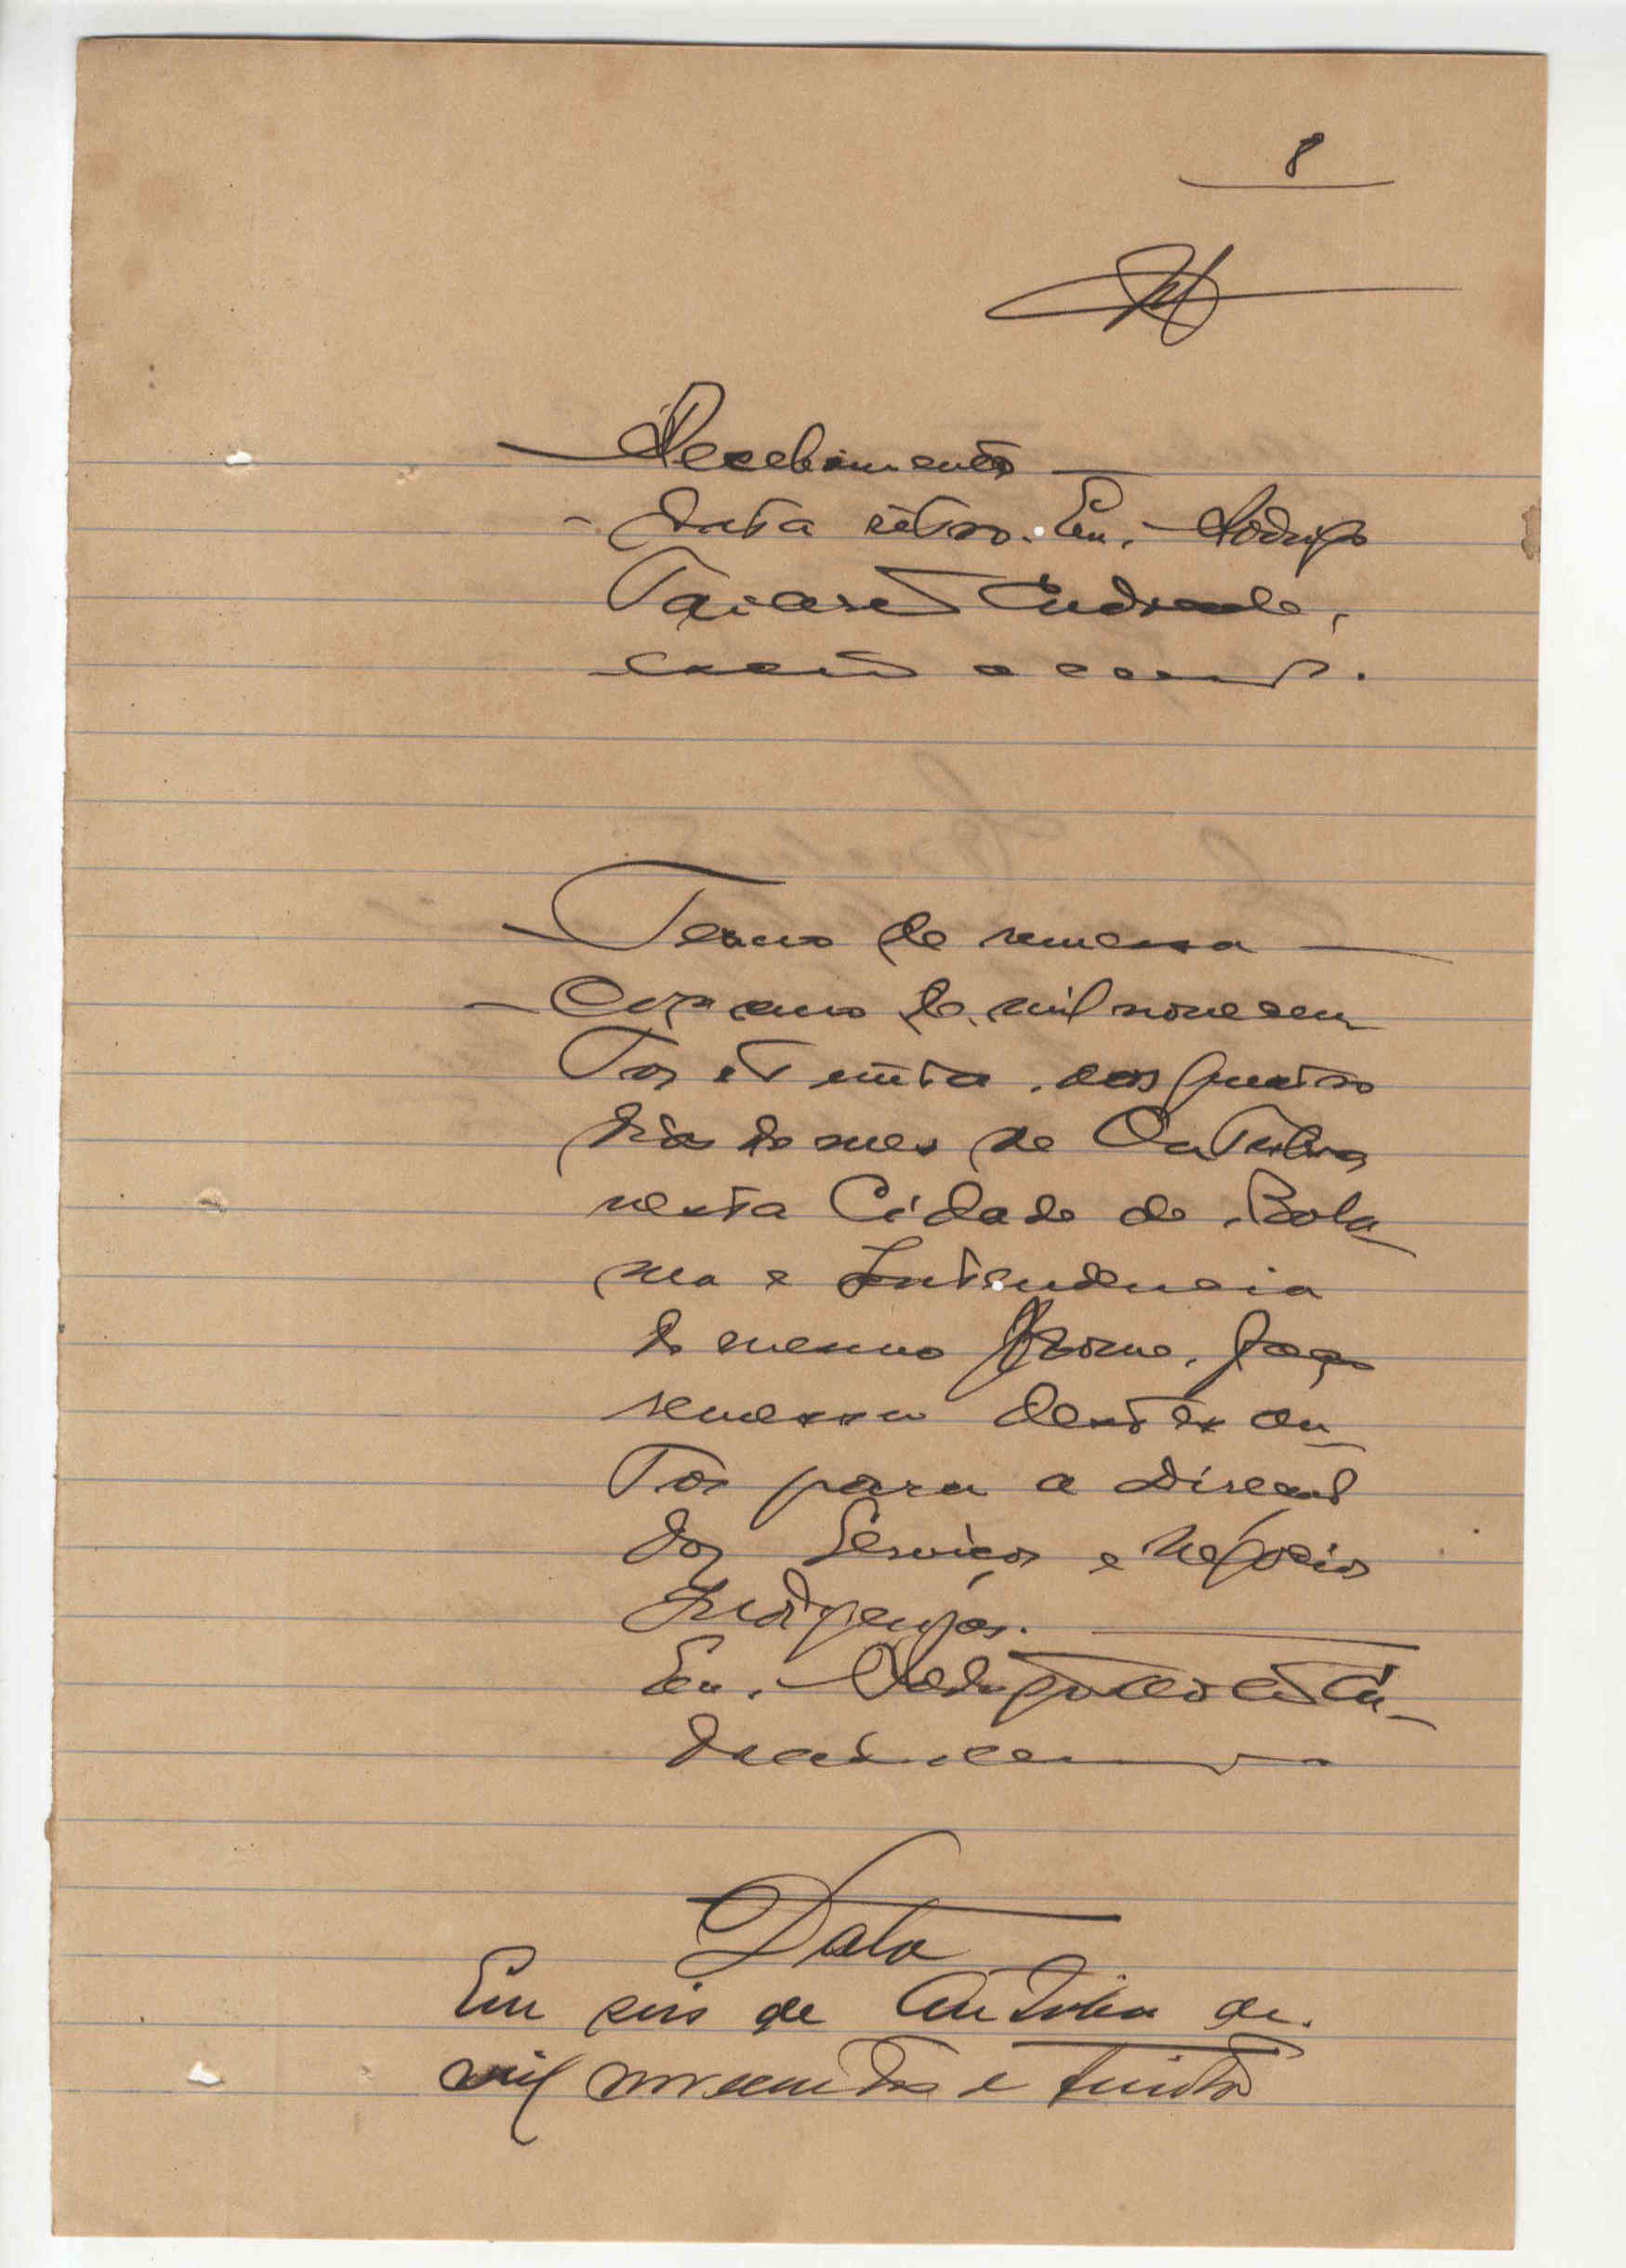 8
Recebimento
Data retro. Eu, Rodrigo
Tavares Andrade,
Termo de remessa
Aos ano de mil novecen
tos e trinta, aos quatro
dias do mes de Outubro
nesta Cidade de Bola
ma e Intendencia
do mesmo Nome, faço
remessa destes au_
tos para a Direcção
dos Serviços e Negocios
Indigenas.
Eu, Rodrigo Tavares An_
Data
Em seis de Outubro de
mil novecentos e trinta